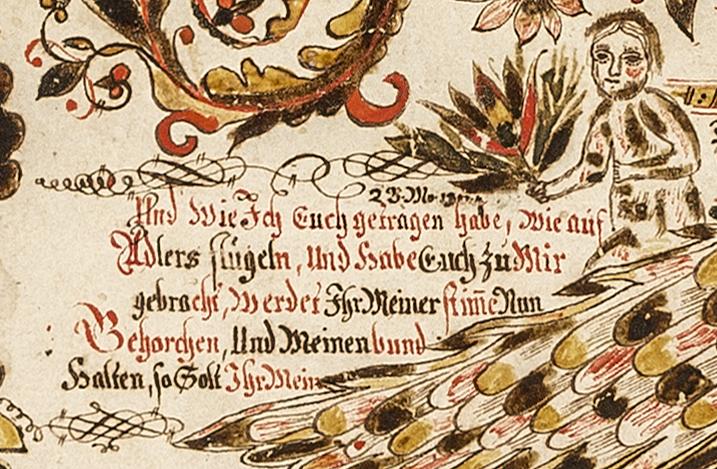 Und Wie Ich Euch getragen habe, Wie auf
Adlers flügeln, Und Habe Euch zu Mir
gebracht, Werdet Ihr Meiner stim̄e Nun
Gehorchen, Und Meinen bund
Halten, so Solt Ihr Mein